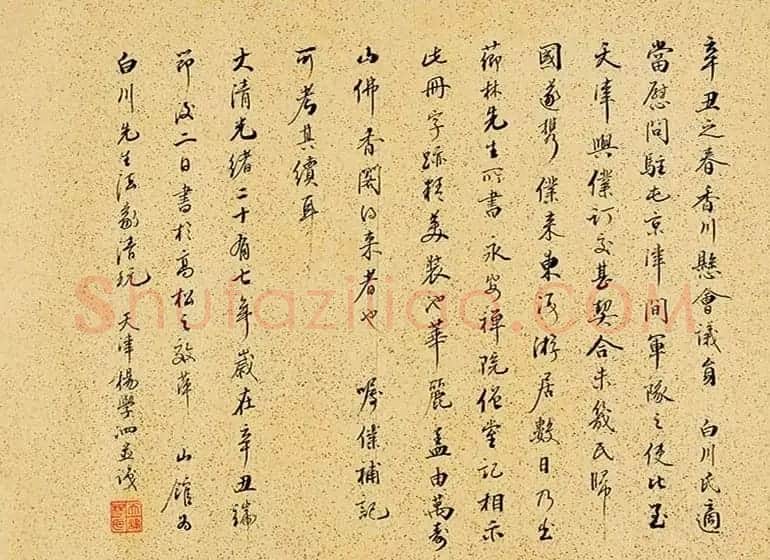 辛丑之春香川懸會議員 白川氏適
當慰問駐屯京津間軍隊之使比至
天津與僕訂交甚契合未幾氏歸
國遂攜僕来東游居數日乃出
薌林先生所書永安禪院僧堂記相示
此冊字跡精美裝池華麗蓋由萬壽
山佛香閣得来者也 囑僕補記
可考其續耳
大清光緒二十有七年歲在辛丑端
節後二日書於高松之山館為
白川先生法家清玩 天津楊學泗並識
Shufaziliao.COM